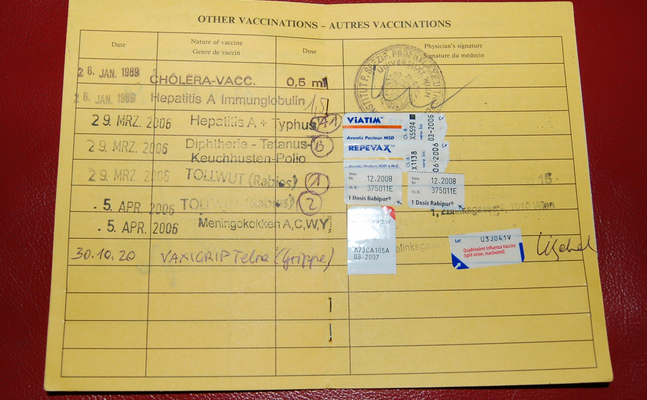 OTHER VACCINATIONS – AUTRES VACCINATIONS
Date Nature of vaccine Dose Physician's signature
Genre de vaccin Signature du médecin
26. JAN. 1989 CHOLERA-VACC. 0,5 ml
26. JAN. 1989 Hepatitis A Immunglobulin
29. MRZ. 2006 Hepatitis A + Typhus
VIATIM™
Aventis Pasteur MSD
X5594
03-2006
29. MRZ. 2006 Diphtherie - Tetanus-
Keuchhusten-Polio
REPEVAX™
X1138
29. MRZ. 2006 TOLLWUT (Rabies) 1
12-2008 12-2008
375011E 375011E
1 Dosis Rabipur® 1 Dosis Rabipur®
5. APR. 2006 TOLLWUT (Rabies) 2
5. APR. 2006 Meningokokken A,C,W,Y
A73CA105A
08-2007
30.10.20 VAXIGRIP Tetra (Grippe)
Lot U3J041V
Quadrivalent Influenza Vaccine
(split virion, inactivated)